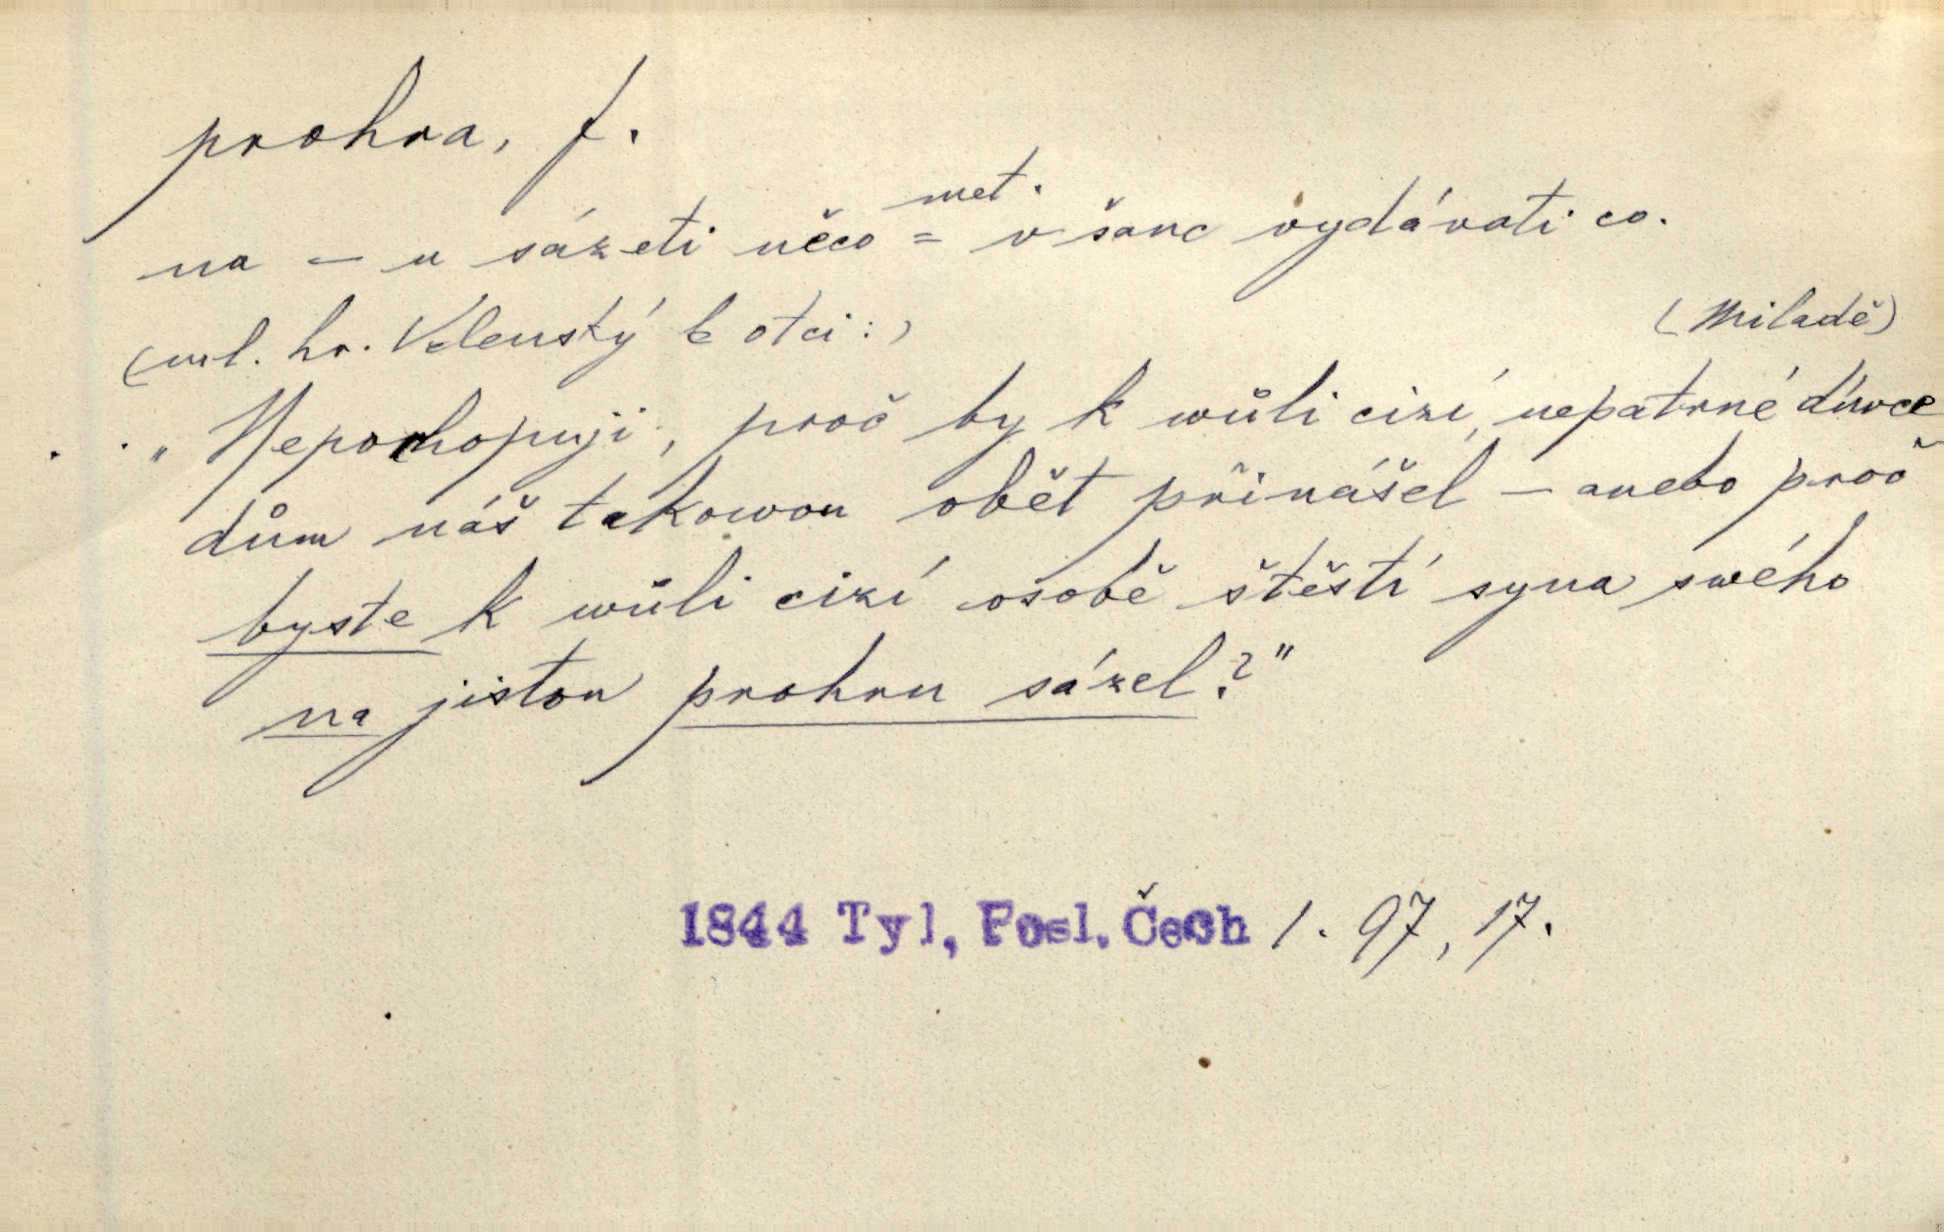 prohra, f.
met.
na – u sázeti něco = v šanc vydávati co.
(ml. hr. Velenský k otci:)
(Miladě)
„Nepochopuji, proč by k wůli cizí, nepatrné dívce
dům náš takowou obět přinášel – anebo proč
byste k wůli cizí osobě štěstí syna swého
na jistou prohru sázel?"
1844 Tyl, Posl. Čech 1. 97, 17.